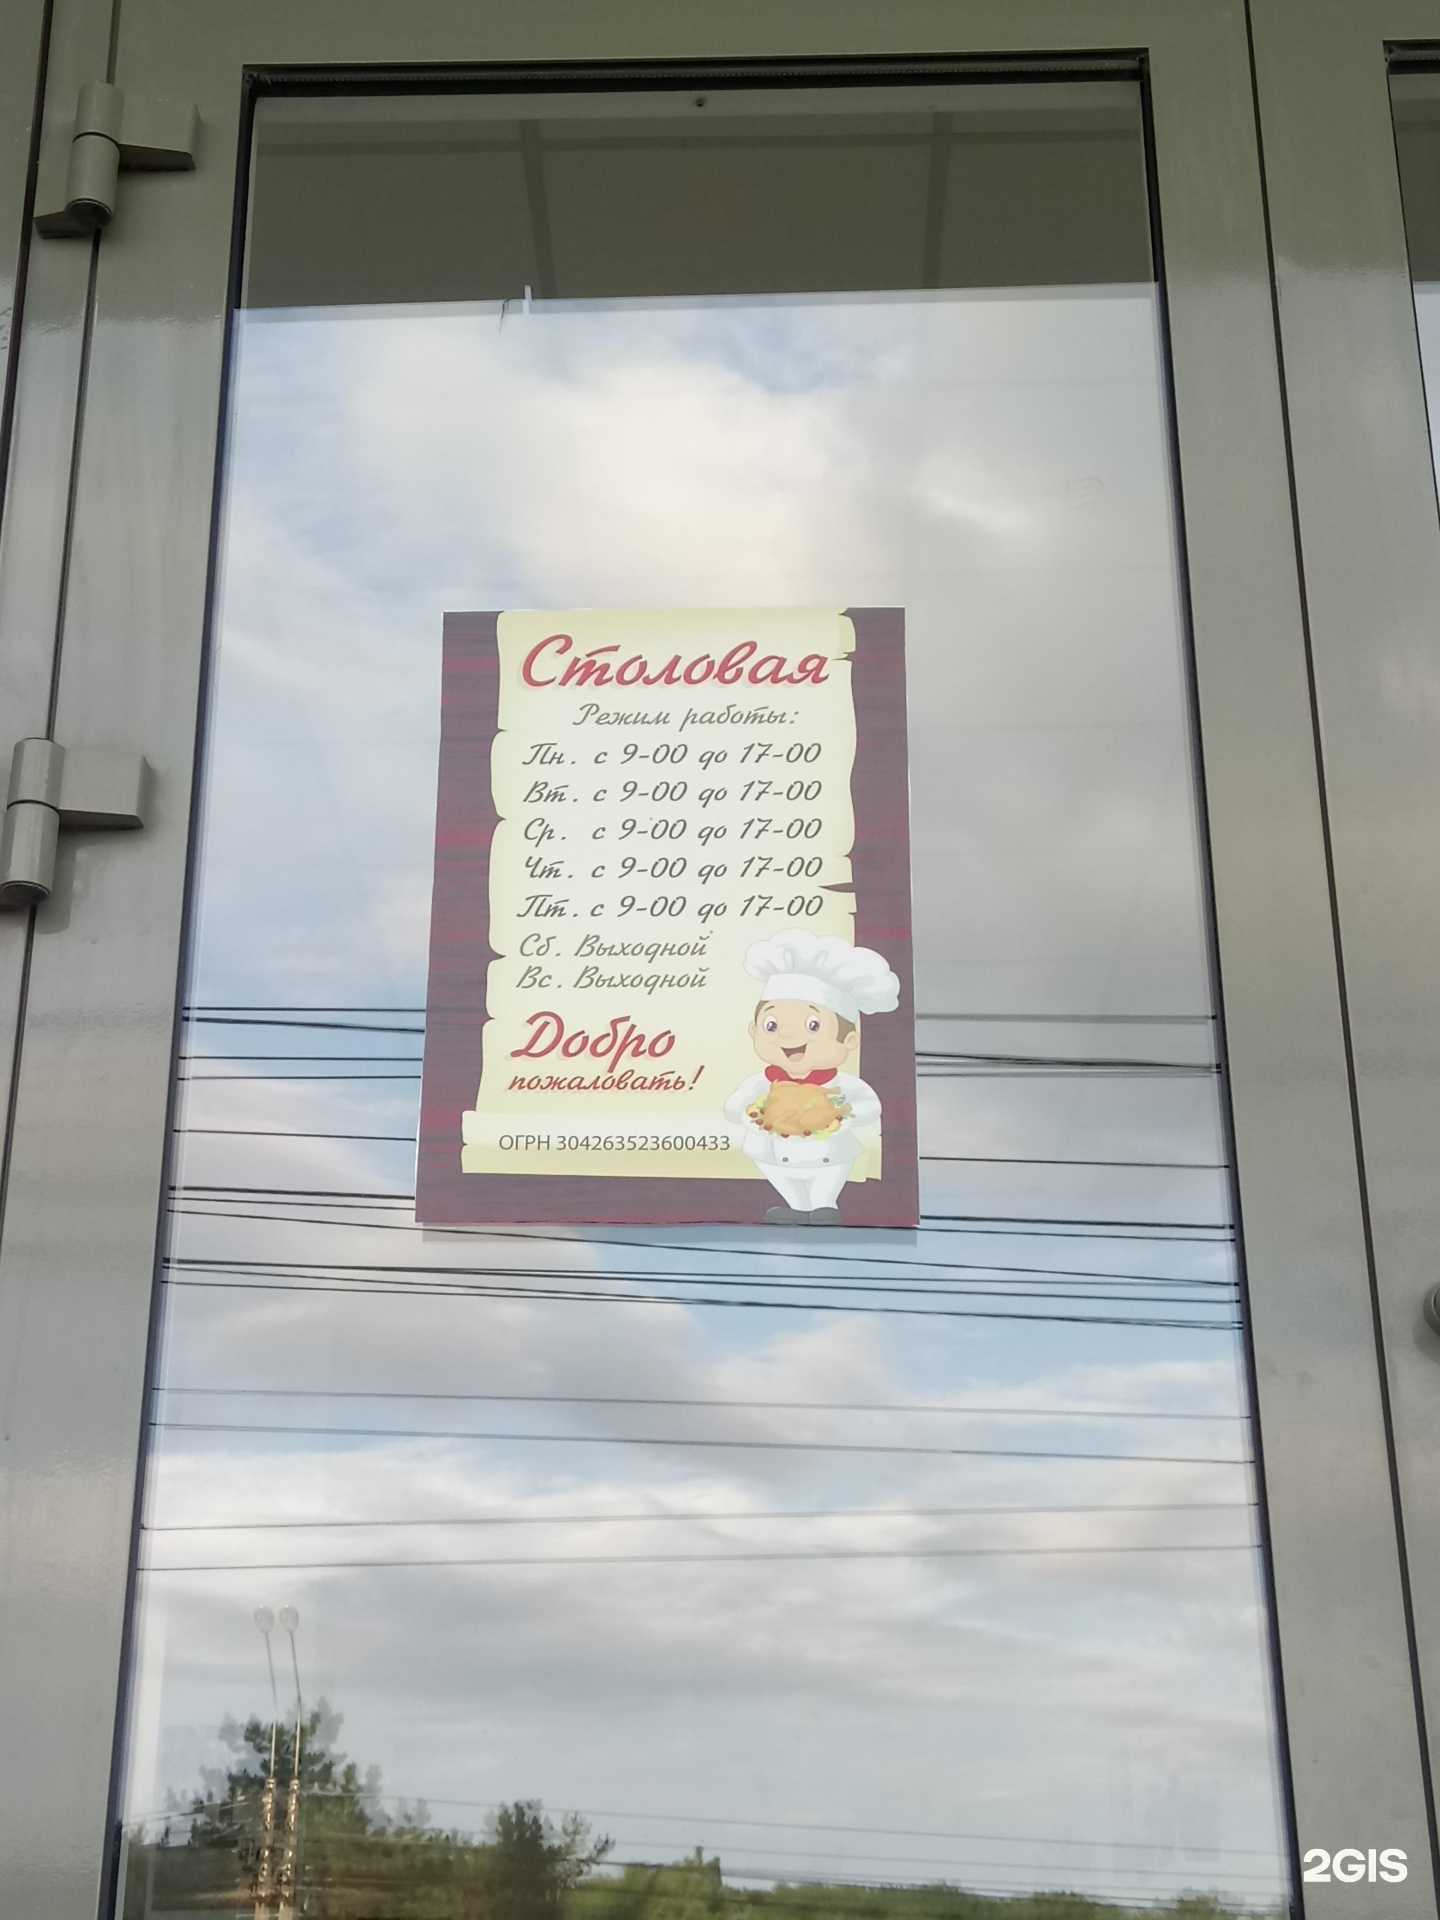 Столовая
Режим работы:
Пн. с 9-00 до 17-00
Вт. с 9-00 до 17-00
Ср. с 9-00 до 17-00
Чт. с 9-00 до 17-00
Пт. с 9-00 до 17-00
Сб. Выходной
Вс. Выходной
Добро
пожаловать!
ОГРН 304263523600433
2GIS